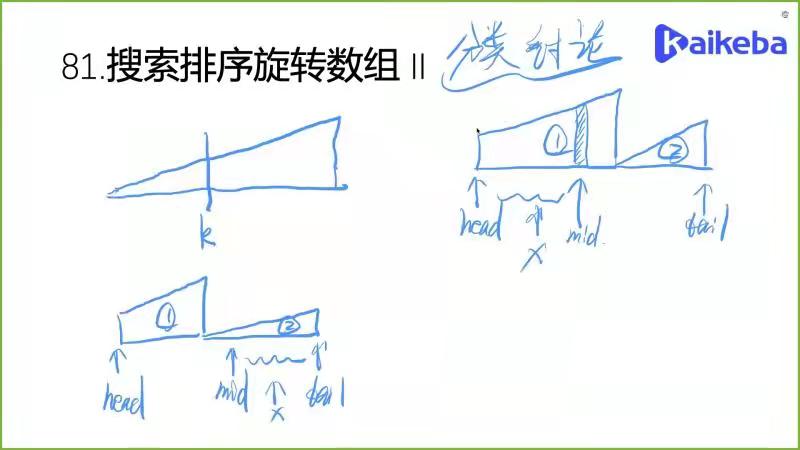 81.搜索排序旋转数组 II
分类讨论
kaikeba
k
① ②
head mid tail
x
① ②
head mid tail
x